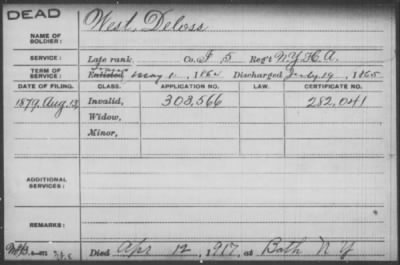 DEAD
NAME OF SOLDIER: West, Deloss
SERVICE: Late rank, Co. F 5 Reg't N.Y.H.A.
TERM OF SERVICE: Enlisted May 1, 1862 Discharged July 19, 1865
DATE OF FILING. CLASS. APPLICATION NO. LAW. CERTIFICATE NO.
1879, Aug. 13, Invalid, 303,566 282,041
Widow,
Minor,
ADDITIONAL SERVICES:
REMARKS:
Died Apr 12, 1917, at Bath N Y